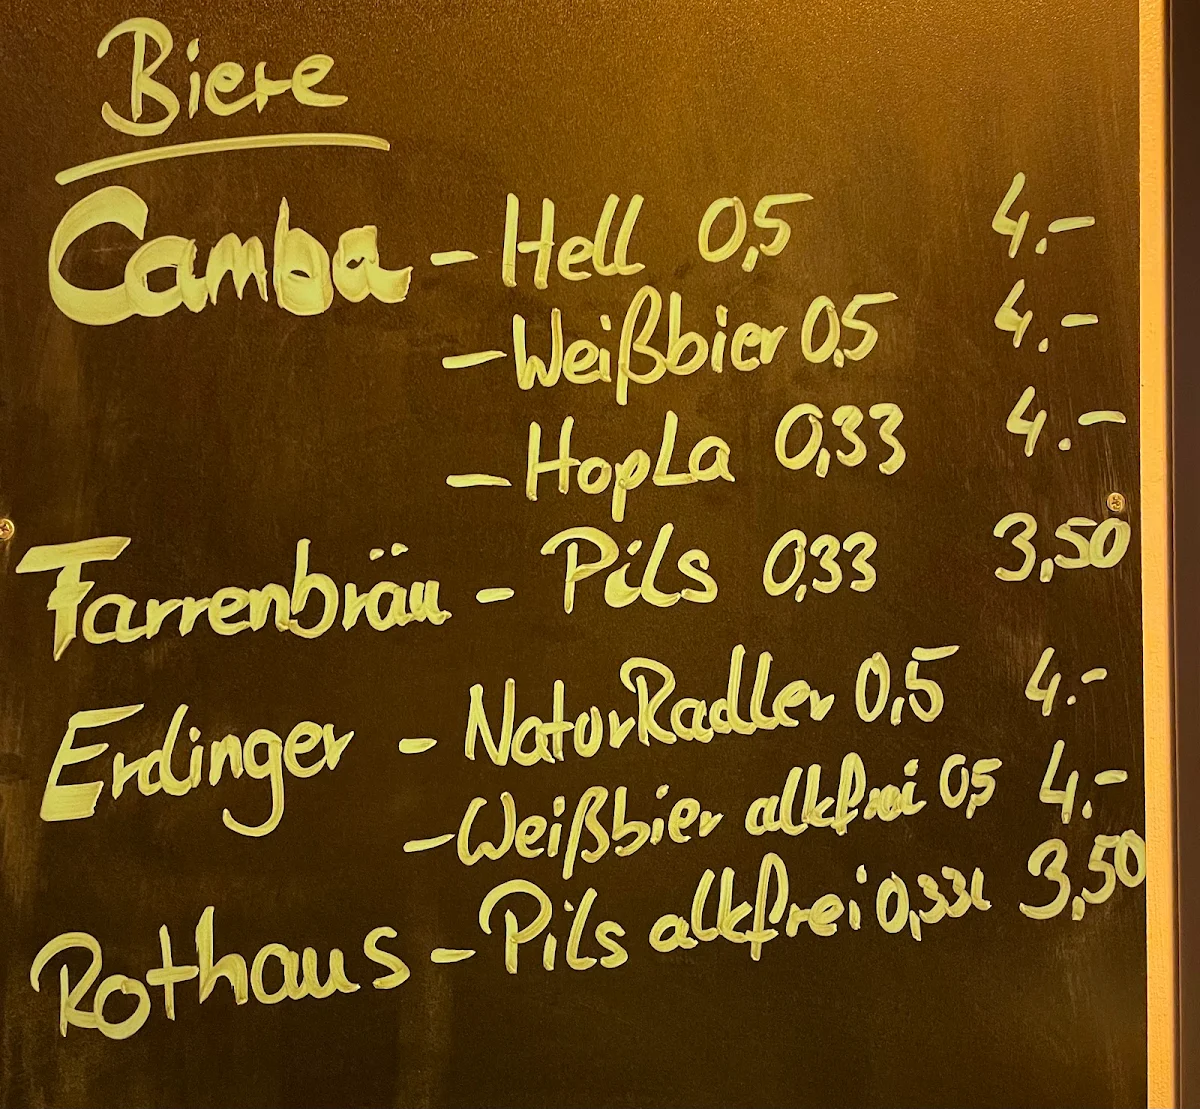 Biere
Camba - Hell 0,5 4.-
- Weißbier 0,5 4.-
- HopLa 0,33 4.-
Farrenbräu - Pils 0,33 3,50
Erdinger - NaturRadler 0,5 4.-
- Weißbier alkfrei 0,5 4.-
Rothaus - Pils alkfrei 0,33l 3,50